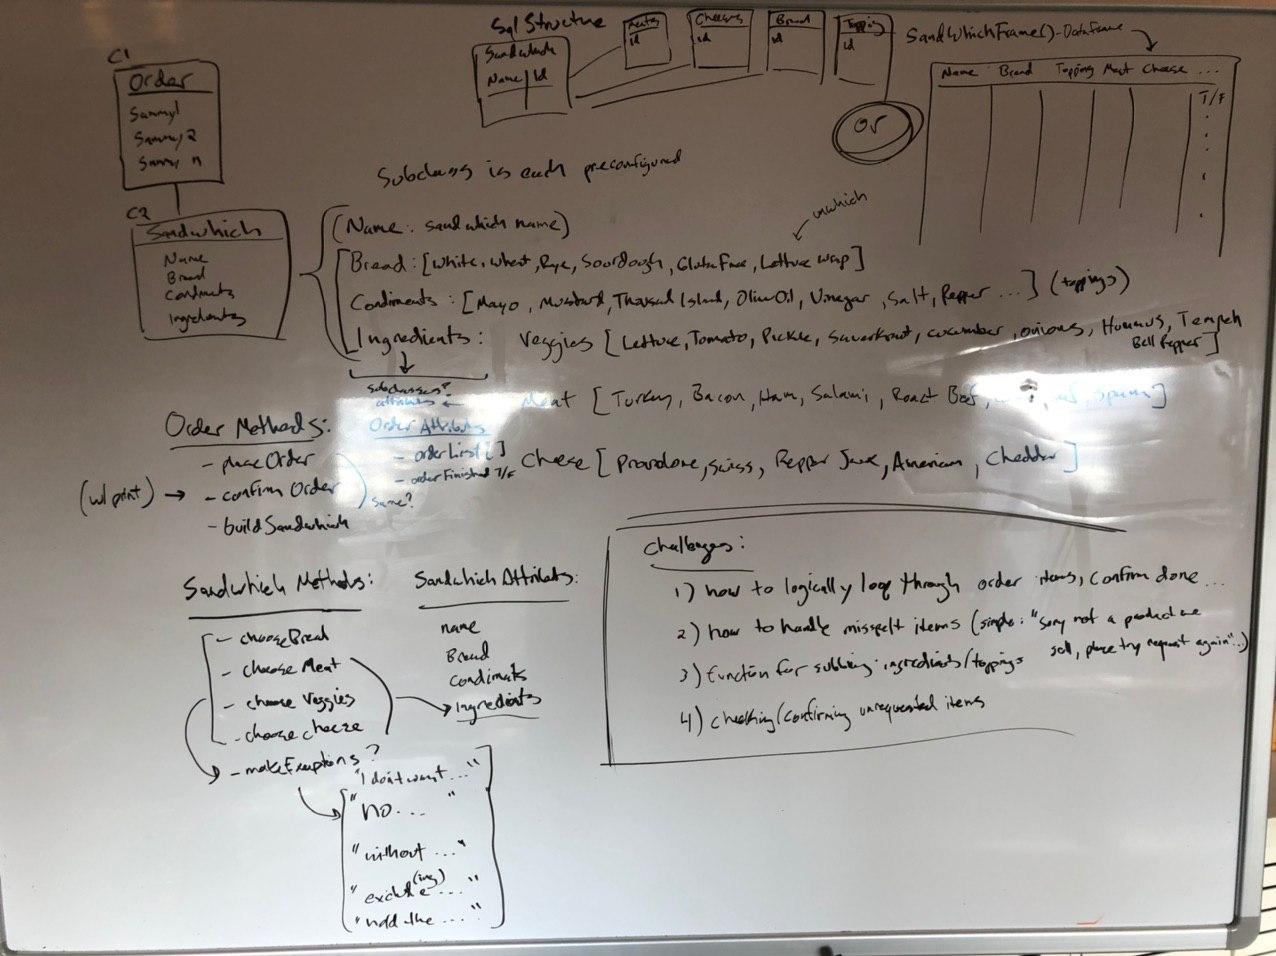 Sql Structure
Sandwhich
Name | Id
Meats
id
Cheeses
id
Bread
id
Topping
id
or
SandwhichFrame()-DataFrame
Name Bread Topping Meat Cheese ...
T/F
C1
Order
Sammy1
Sammy2
Sammy n
C2
Sandwhich
Name
Bread
Condiments
Ingredients
Subclass is each preconfigured
(Name: sandwhich name)
unwhich
Bread: [White, wheat, Rye, Sourdough, Gluten Free, Lettuce wrap]
Condiments: [Mayo, Mustard, Thousand Island, Olive Oil, Vinegar, Salt, Pepper ...] (toppings)
Ingredients: Veggies [Lettuce, Tomato, Pickle, Sauerkraut, cucumber, onions, Hummus, Tempeh
Bell Pepper]
subclasses?
attributes ←
Meat [Turkey, Bacon, Ham, Salami, Roast Beef, Spam]
Cheese [Provolone, Swiss, Pepper Jack, American, Cheddar]
Order Methods:
- placeOrder
(w/ print) → - confirm Order
- buildSandwhich
same?
Order Attributes
- orderList[]
- orderFinished T/F
Sandwhich Methods:
- chooseBread
- choose Meat
- choose Veggies
- choose cheeze
- makeExceptions?
"I don't want..."
"no...."
"without ..."
"exclude(ing) ...."
"add the ...."
Sandwhich Attributes:
name
Bread
Condiments
Ingredients
Challenges:
1) how to logically loop through order items, confirm done ...
2) how to handle misspelt items (simple: "Sorry not a product we
sell, please try request again"...)
3) function for subbing ingredients/toppings
4) checking/confirming unrequested items